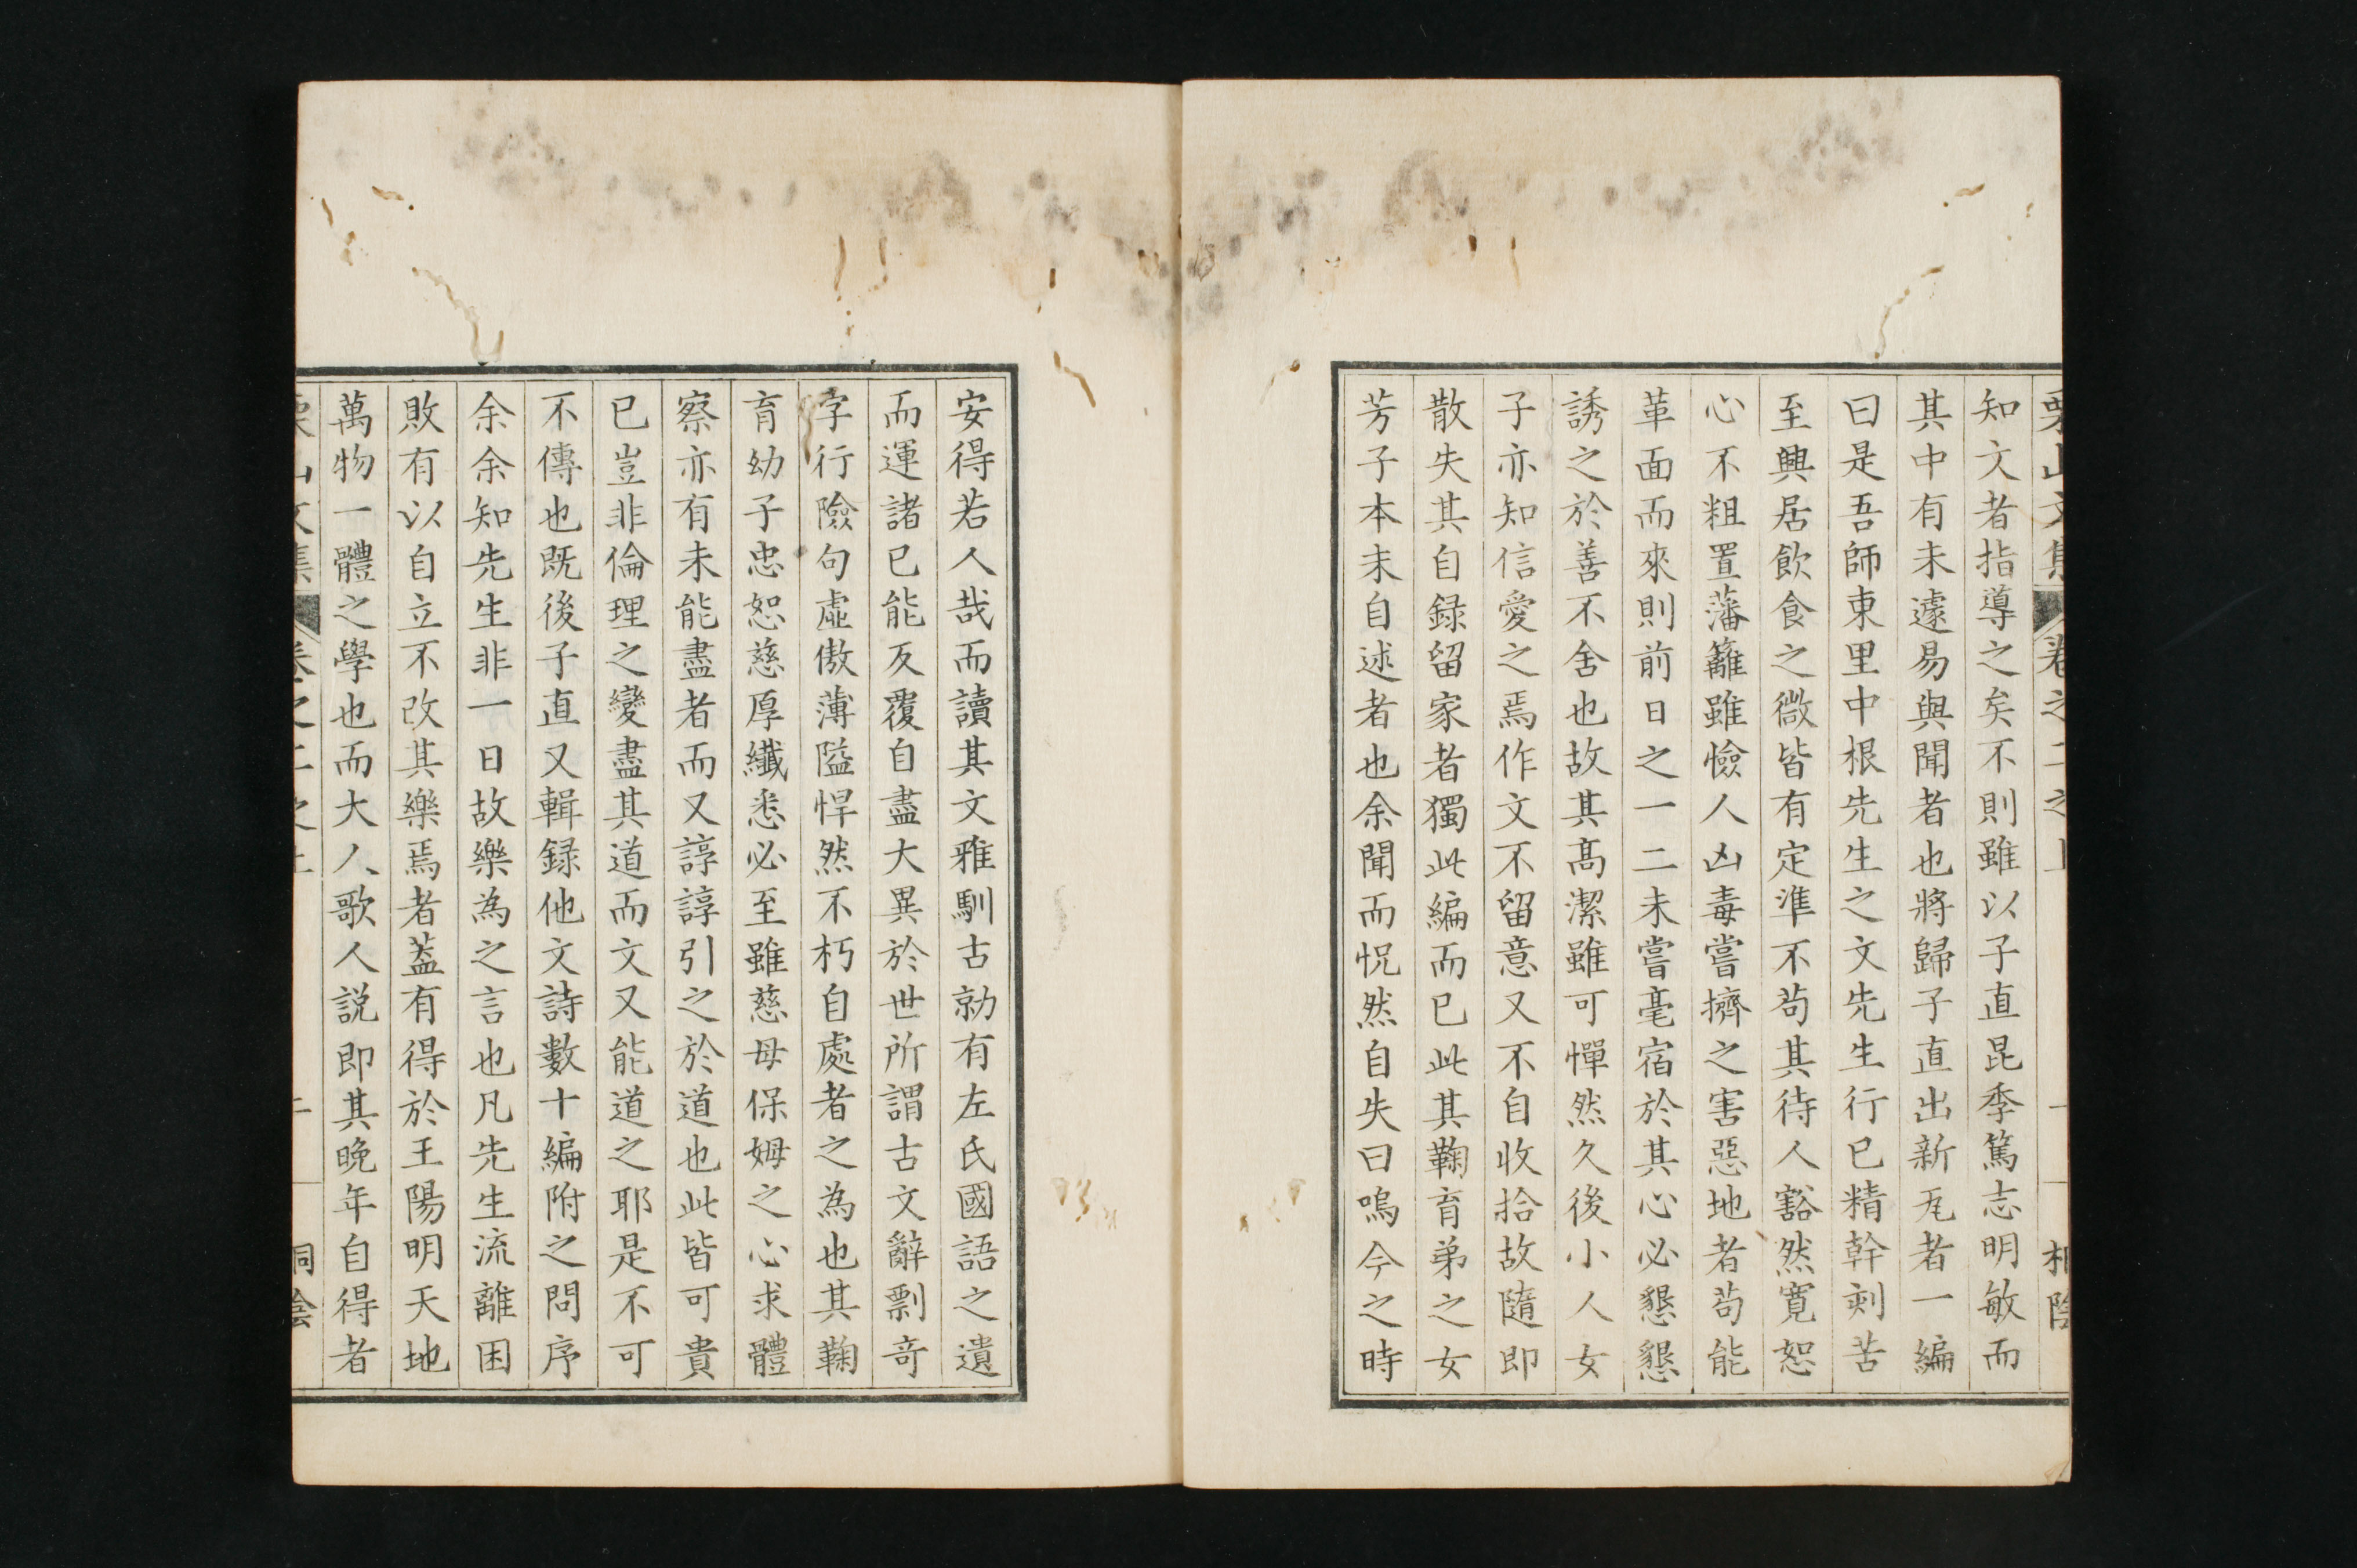 栗山文集 卷之二之上 十一 桐陰
知文者指導之矣不則雖以子直昆季篤志明敏而
其中有未遽易與聞者也將歸子直出新刓者一編
曰是吾師東里中根先生之文先生行已精幹刻苦
至興居飲食之微皆有定準不苟其待人豁然寬恕
心不粗置藩籬雖憸人凶毒嘗擠之害惡地者苟能
革面而來則前日之一二未嘗毫宿於其心必懇懇
誘之於善不舍也故其高潔雖可憚然久後小人女
子亦知信愛之焉作文不留意又不自收拾故隨即
散失其自録留家者獨此編而已此其鞠育弟之女
芳子本末自述者也余聞而怳然自失曰嗚今之時
安得若人哉而讀其文雅馴古勍有左氏國語之遺
而運諸已能反覆自盡大異於世所謂古文辭剽奇
字行險句虛傲薄隘悍然不朽自處者之為也其鞠
育幼子忠恕慈厚纖悉必至雖慈母保姆之心求體
察亦有未能盡者而又諄諄引之於道也此皆可貴
已豈非倫理之變盡其道而文又能道之耶是不可
不傳也既後子直又輯録他文詩數十編附之問序
余余知先生非一日故樂為之言也凡先生流離困
敗有以自立不改其樂焉者蓋有得於王陽明天地
萬物一體之學也而大人歌人説即其晩年自得者
栗山文集 卷之二之上 十一 桐陰